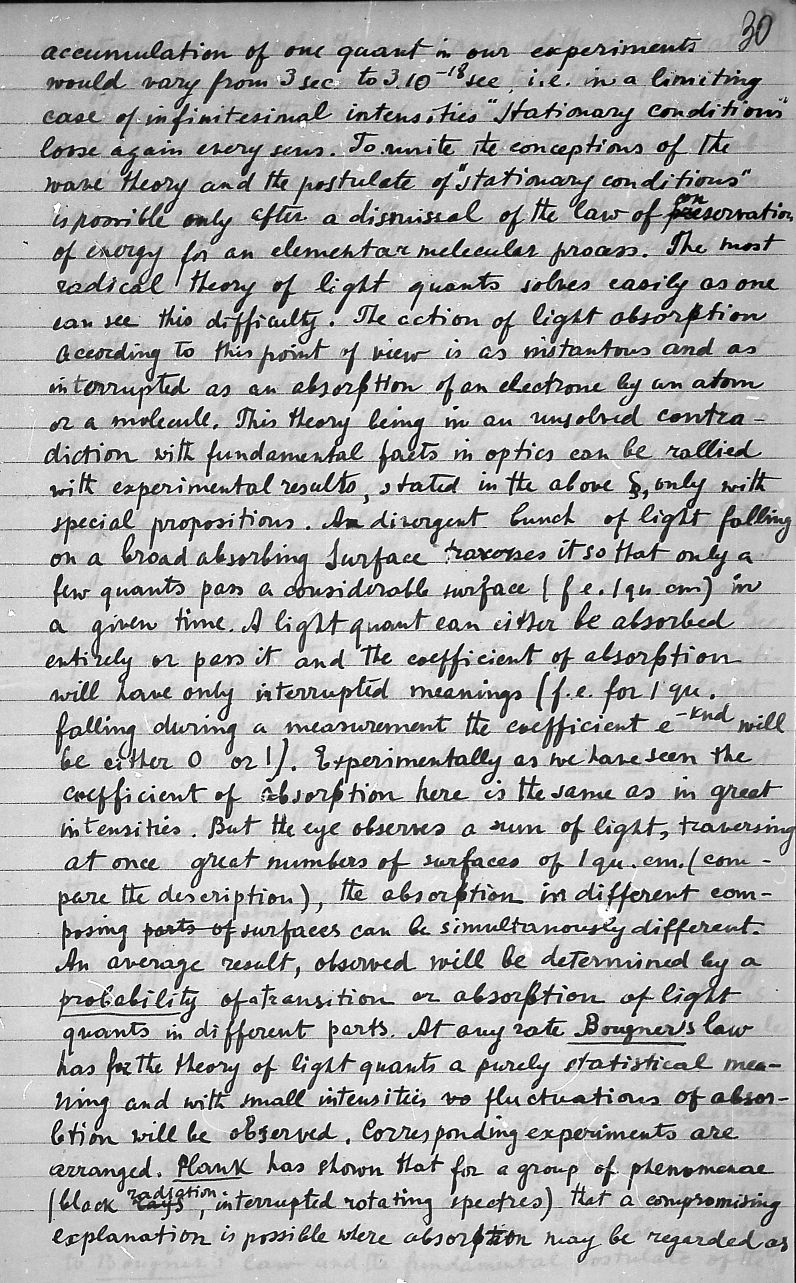 30
accumulation of one quant in our experiments
would vary from 3 sec to 3.10⁻¹⁸ sec, i.e. in a limiting
case of infinitesimal intensities "stationary conditions"
loose again every sens. To unite the conceptions of the
wave theory and the postulate of "stationary conditions"
is possible only after a dismissal of the law of conservation
of energy for an elementar molecular process. The most
radical theory of light quants solves easily as one
can see this difficulty. The action of light absorption
according to this point of view is as instantous and as
intorrupted as an absorption of an electrone by an atom
or a molecule. This theory being in an unsolved contra-
diction with fundamental facts in optics can be rallied
with experimental results, stated in the above §, only with
special propositions. A divergent bunch of light falling
on a broad absorbing surface traverses it so that only a
few quants pass a considerable surface (f.e. 1 qu. cm) in
a given time. A light quant can either be absorbed
entirely or pass it and the coefficient of absorption
will have only interrupted meanings (f.e. for 1 qu.
falling during a measurement the coefficient e⁻ᴷⁿᵈ will
be either 0 or 1). Experimentally as we have seen the
coefficient of absorption here is the same as in great
intensities. But the eye observes a sum of light, traversing
at once great numbers of surfaces of 1 qu. cm. (com-
pare the description), the absorption in different com-
posing parts of surfaces can be simultanously different.
An average result, observed will be determined by a
probability of transition or absorption of light
quants in different parts. At any rate Bouguer's law
has for the theory of light quants a purely statistical mea-
ning and with small intensities vo fluctuations of absor-
btion will be observed. Corresponding experiments are
arranged. Plank has shown that for a group of phenomenae
(black radiation, interrupted rotating spectres) that a compromising
explanation is possible where absorption may be regarded as